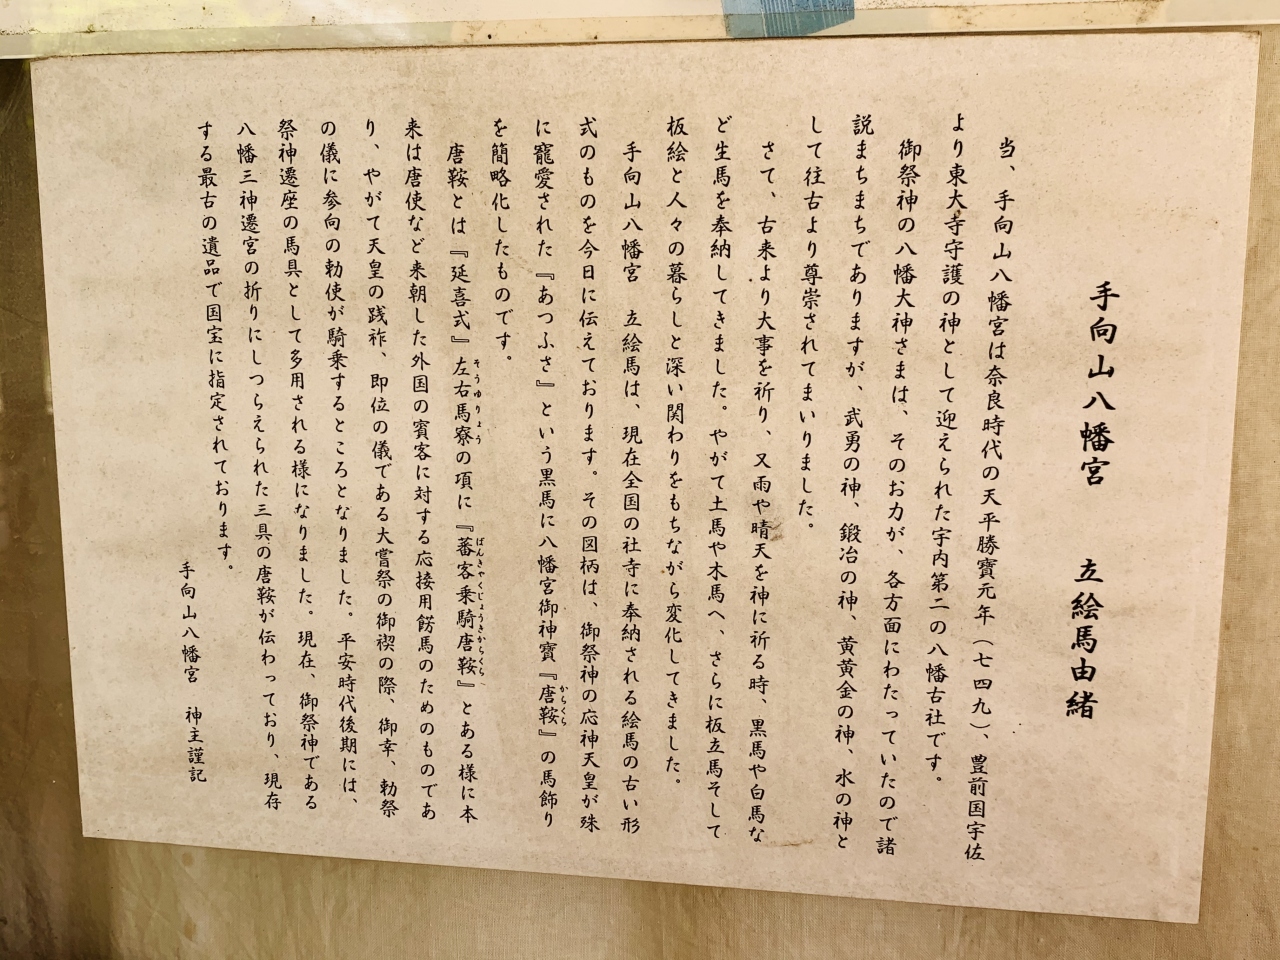 手向山八幡宮　立絵馬由緒
当、手向山八幡宮は奈良時代の天平勝寶元年（七四九）、豊前国宇佐
より東大寺守護の神として迎えられた宇内第二の八幡古社です。
御祭神の八幡大神さまは、そのお力が、各方面にわたっていたので諸
説まちまちでありますが、武勇の神、鍛冶の神、黄黄金の神、水の神と
して往古より尊崇されてまいりました。
さて、古来より大事を祈り、又雨や晴天を神に祈る時、黒馬や白馬な
ど生馬を奉納してきました。やがて土馬や木馬へ、さらに板立馬そして
板絵と人々の暮らしと深い関わりをもちながら変化してきました。
手向山八幡宮　立絵馬は、現在全国の社寺に奉納される絵馬の古い形
式のものを今日に伝えております。その図柄は、御祭神の応神天皇が殊
に寵愛された『あつふさ』という黒馬に八幡宮御神寶『唐鞍』の馬飾り
からくら
を簡略化したものです。
唐鞍とは『延喜式』左右馬寮の項に『蕃客乗騎唐鞍』とある様に本
そうゆりょう
ばんきゃくじょうきからくら
来は唐使など来朝した外国の賓客に対する応接用餝馬のためのものであ
り、やがて天皇の践祚、即位の儀である大嘗祭の御禊の際、御幸、勅祭
の儀に参向の勅使が騎乗するところとなりました。平安時代後期には、
祭神遷座の馬具として多用される様になりました。現在、御祭神である
八幡三神遷宮の折りにしつらえられた三具の唐鞍が伝わっており、現存
する最古の遺品で国宝に指定されております。
手向山八幡宮　神主謹記